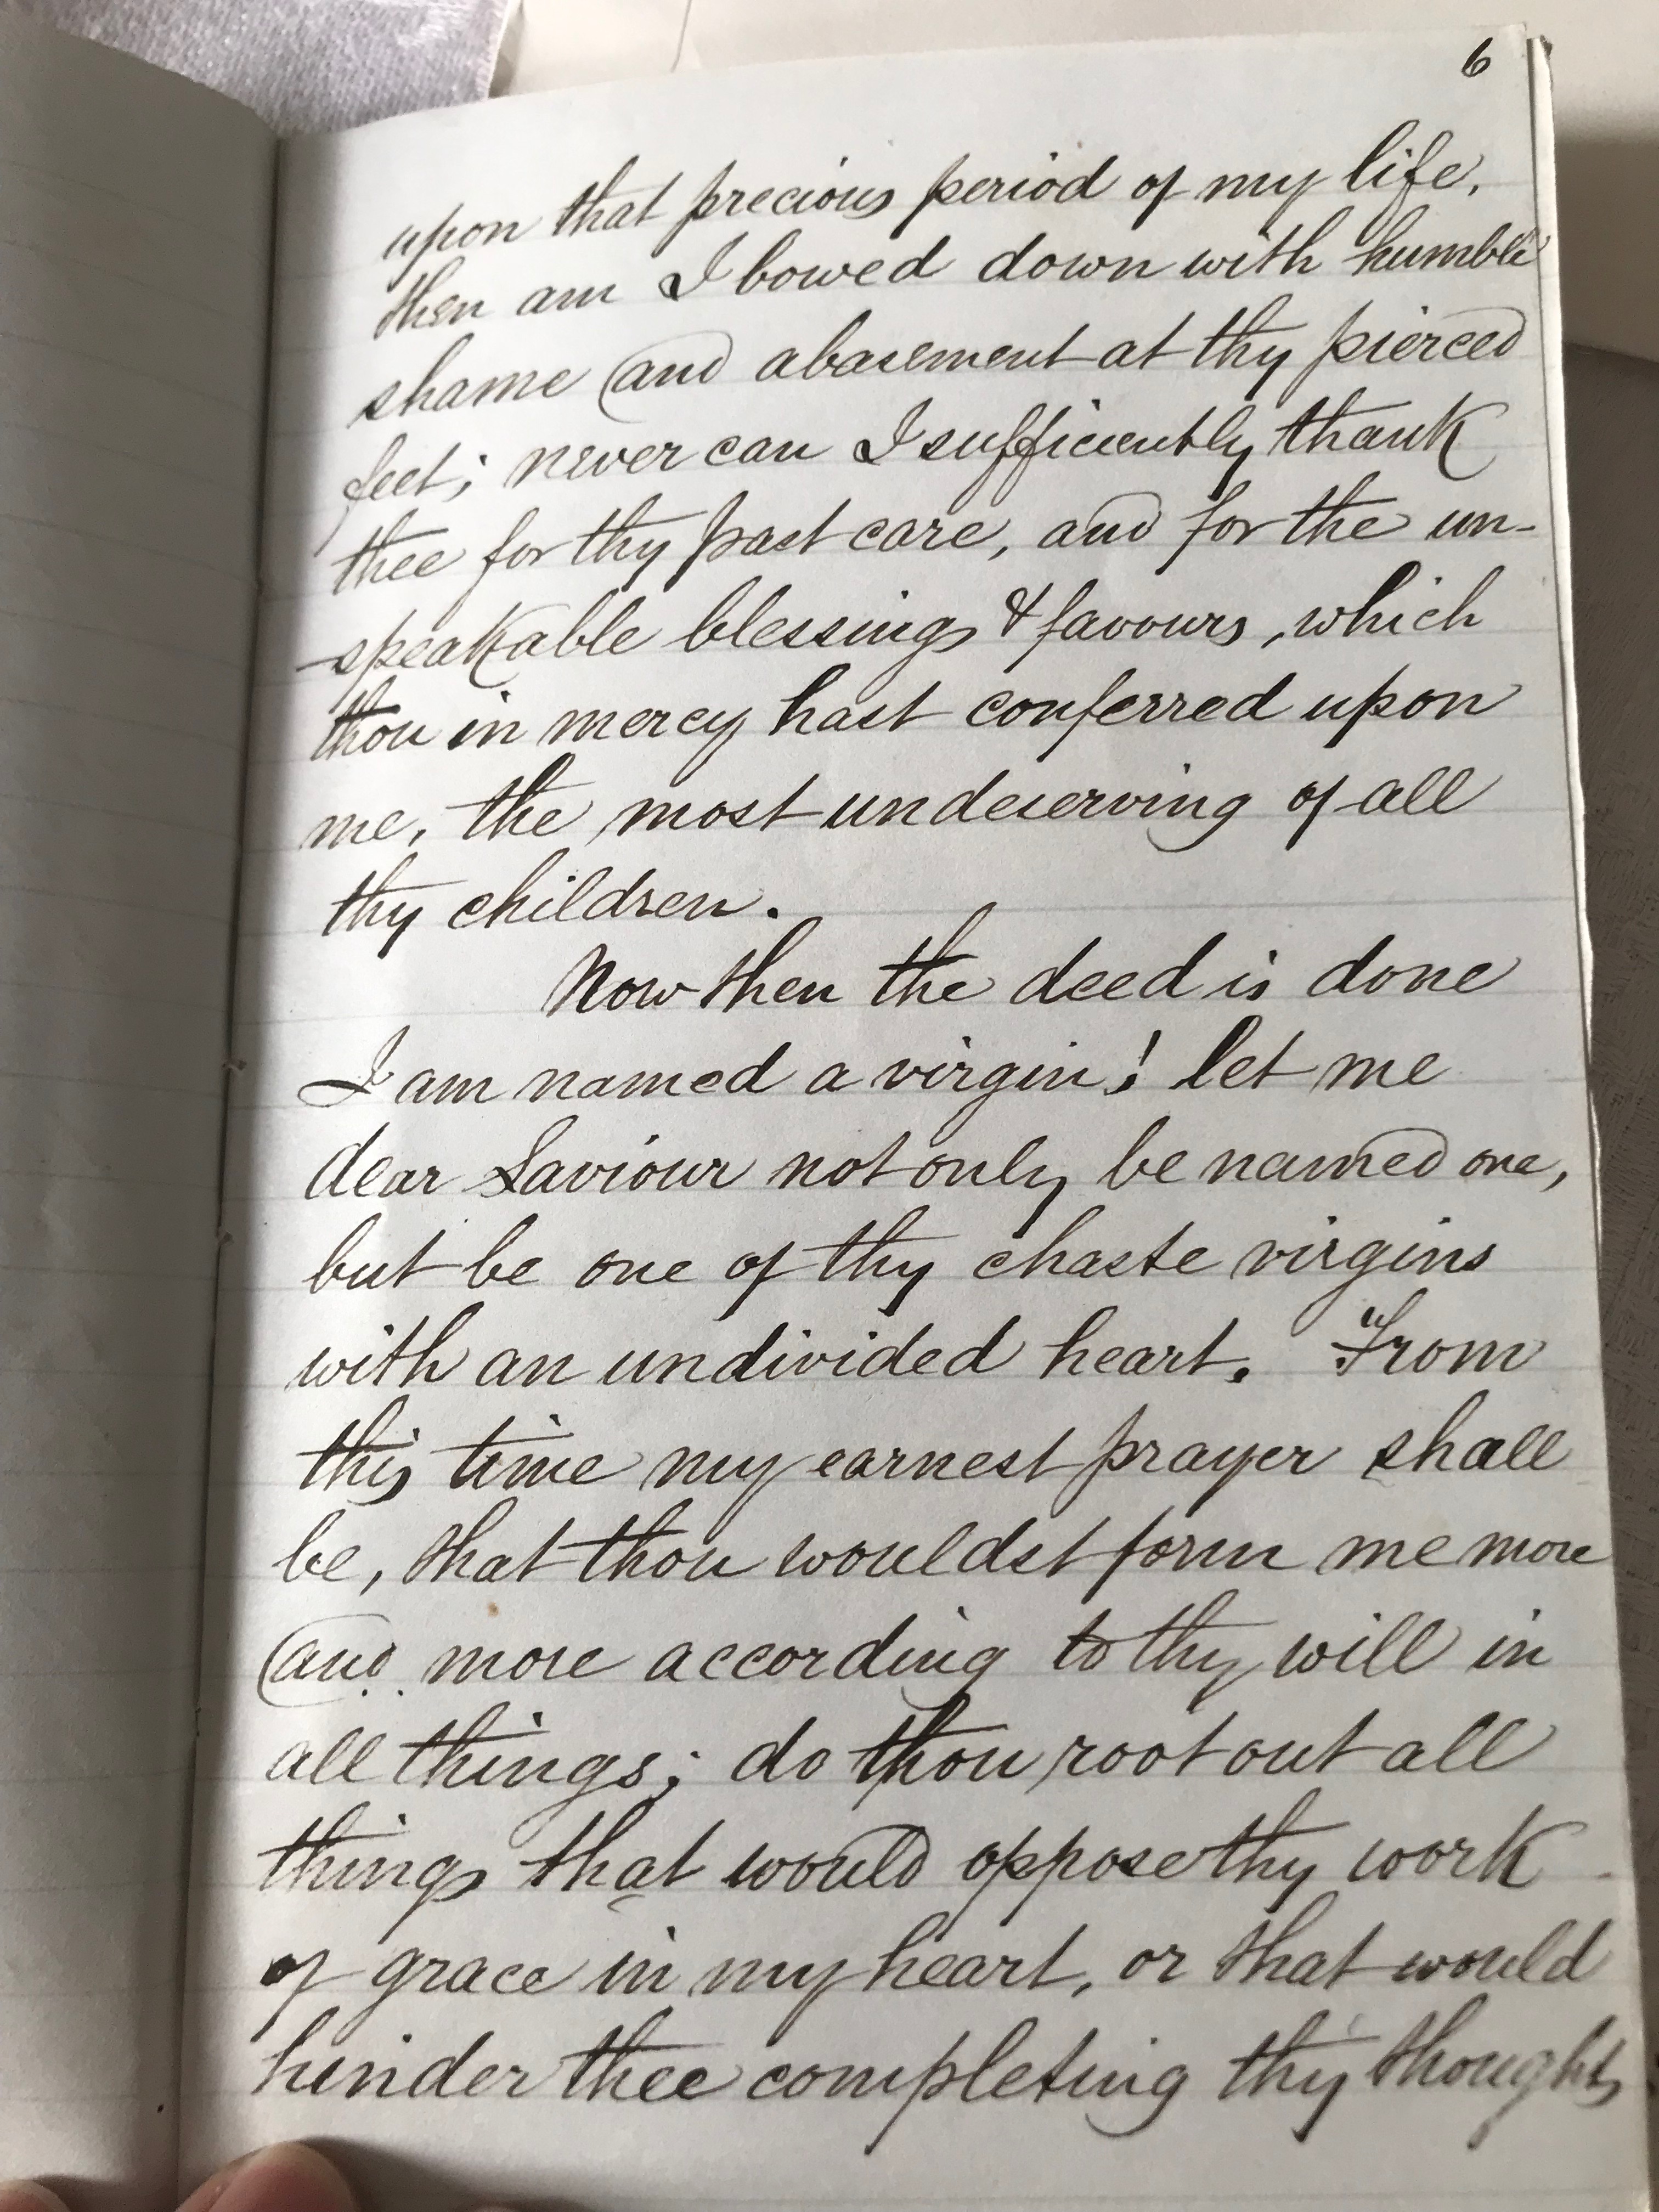 6
upon that precious period of my life,
then am I bowed down with humble
shame and abasement at thy pierced
feet; never can I sufficiently thank
thee for thy past care, and for the un-
speakable blessings & favours, which
thou in mercy hast conferred upon
me, the most undeserving of all
thy children.
Now then the deed is done
I am named a virgin! let me
dear Saviour not only be named one,
but be one of thy chaste virgins
with an undivided heart. From
this time my earnest prayer shall
be, that thou wouldst form me more
and more according to thy will in
all things; do thou root out all
things that would oppose thy work
of grace in my heart, or that would
hinder thee completing thy thoughts